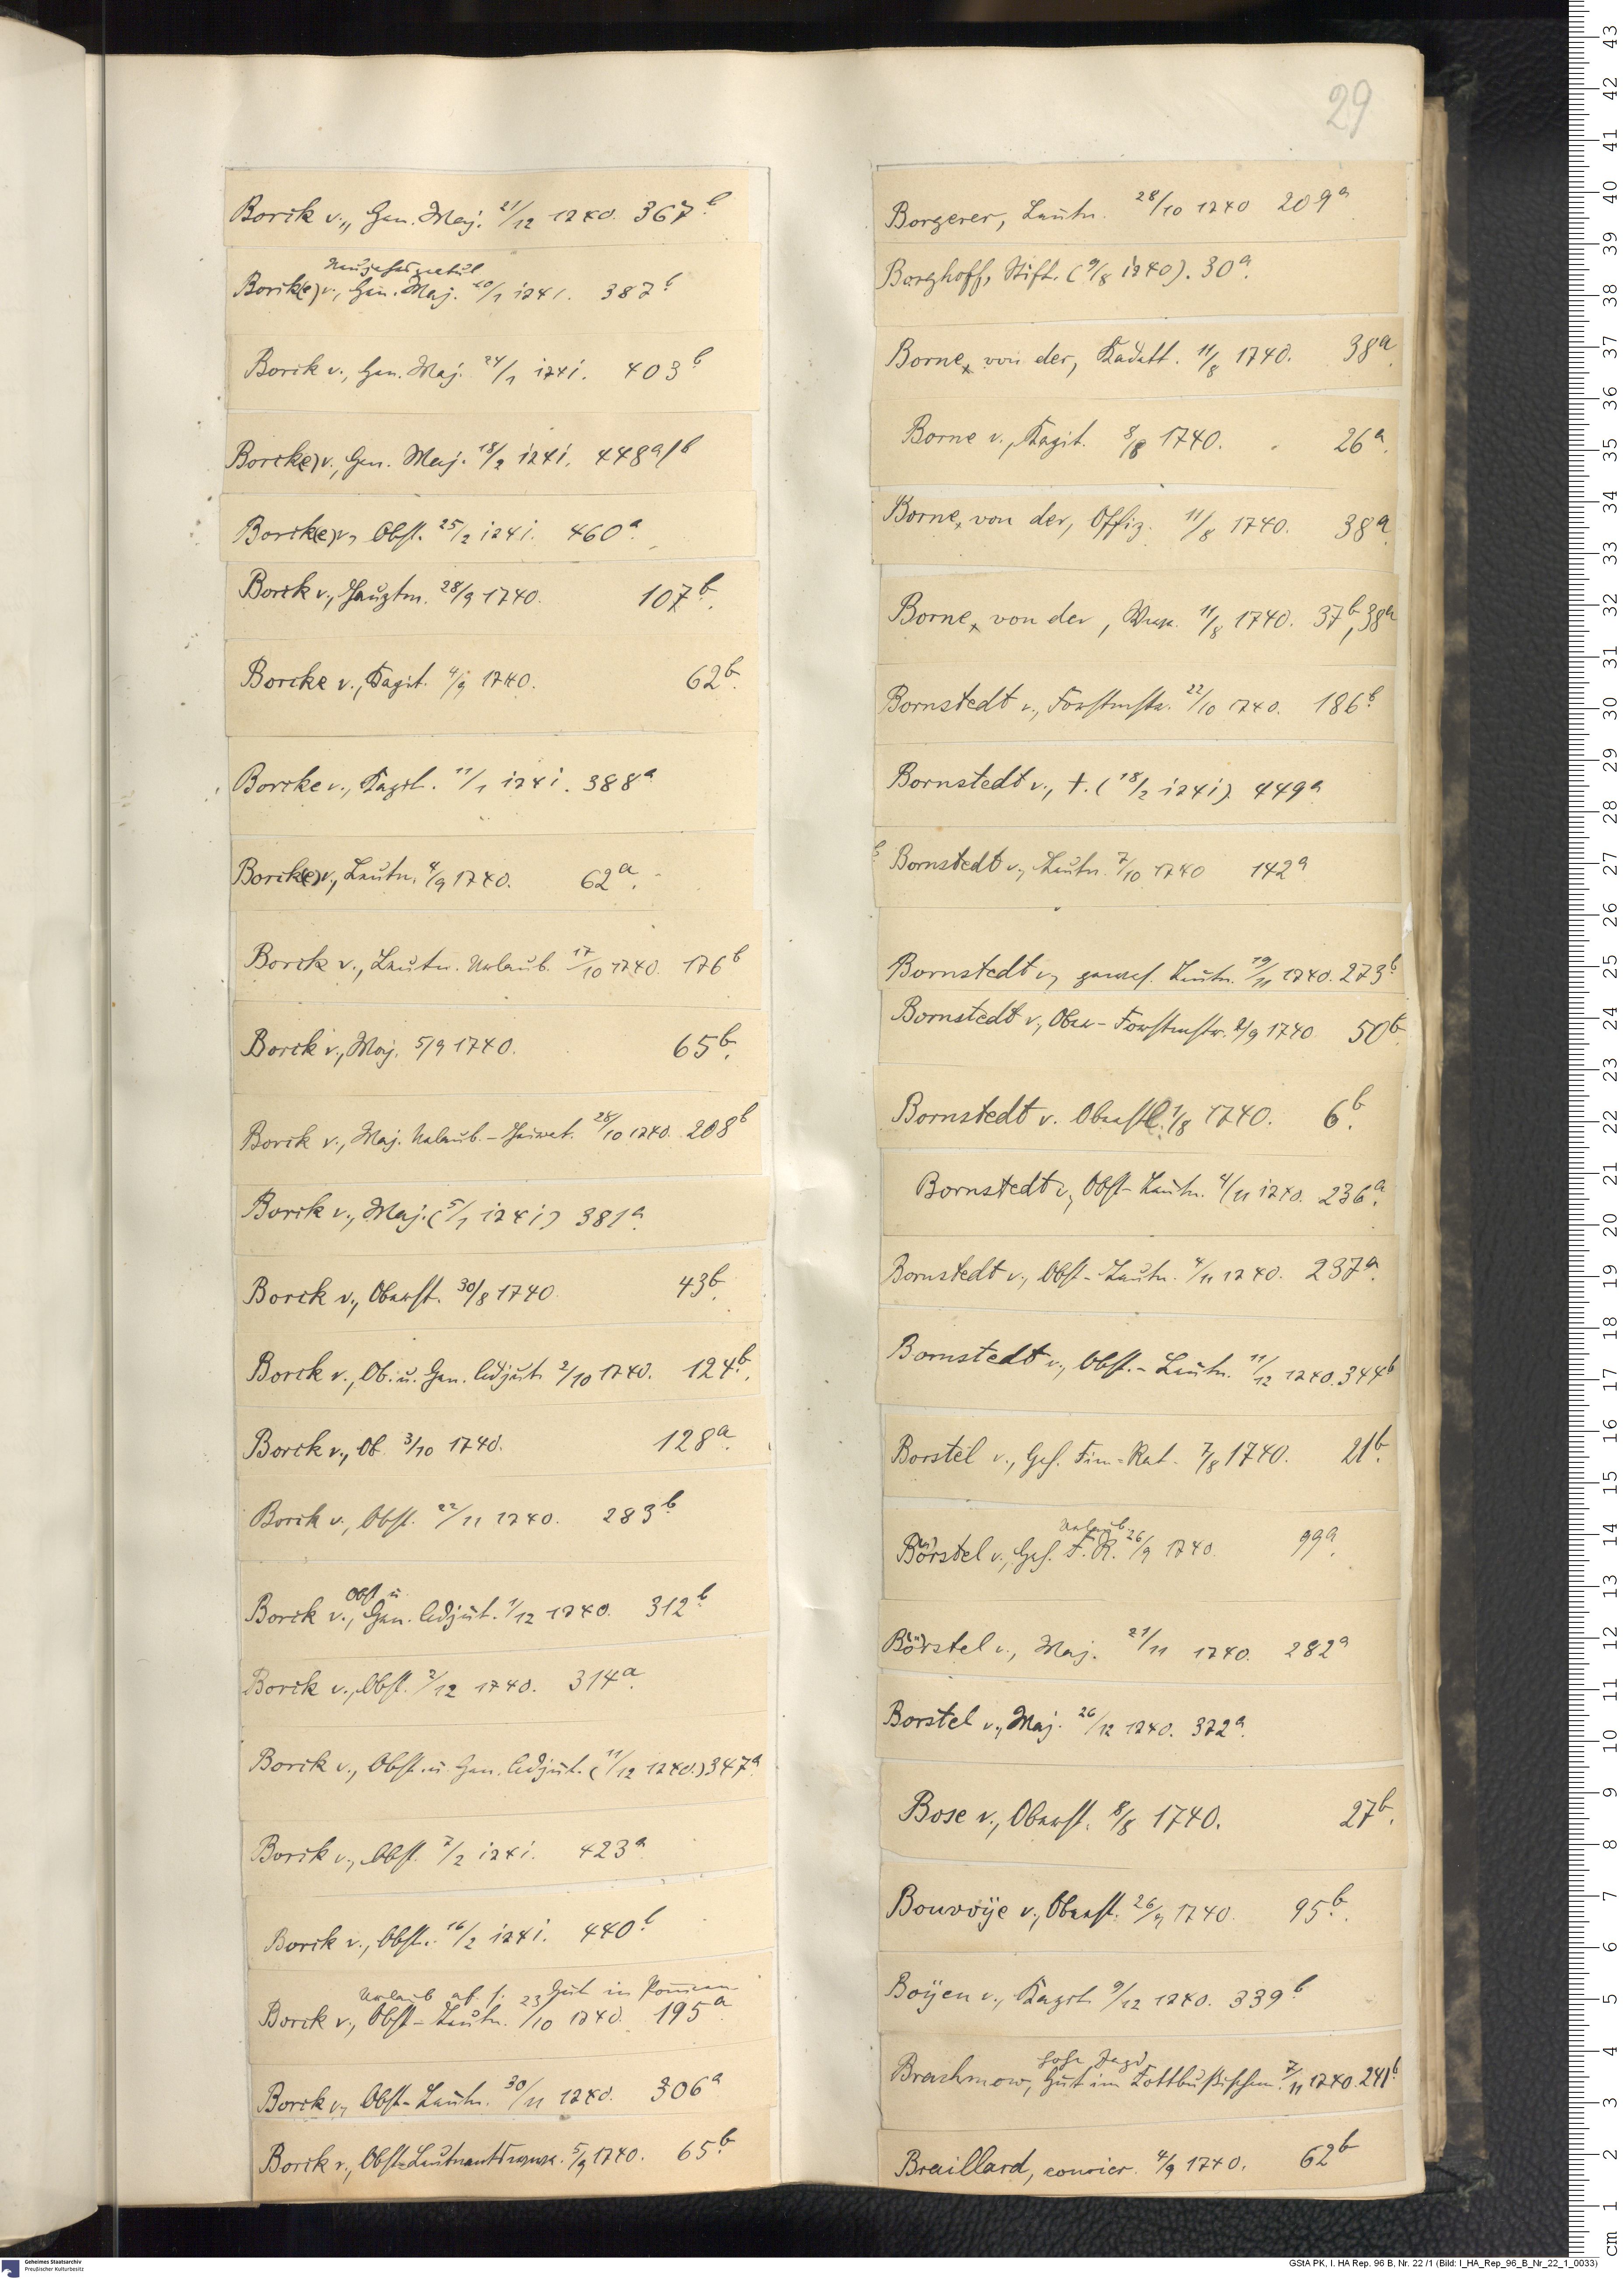 29
Borck v., Gen. Maj. 21/12 1740. 367b.
Neujahrsgratul
Borck(e) v., Gen. Maj. 10/1 1741. 387b
Borck v., Gen. Maj. 24/1 1741. 403b
Borck(e) v., Gen. Maj. 18/2 1741. 448a/b
Borck(e) v., Obst. 25/2 1741. 460a.
Borck v., Hauptm. 28/9 1740. 107b.
Borcke v., Kapit. 4/9 1740. 62b.
Borcke v., Kapit. 11/1 1741. 388a
Borck(e) v., Leutn. 4/9 1740. 62a.
Borck v., Leutn. Urlaub. 17/10 1740. 176b
Borck v., Maj. 5/9 1740. 65b.
Borck v., Maj. Urlaub.-Heirat. 28/10 1740. 208b
Borck v., Maj. (5/1 1741) 381a.
Borck v., Oberst. 30/8 1740. 43b.
Borck v., Ob. u. Gen. Adjut. 2/10 1740. 124b.
Borck v., Ob. 3/10 1740. 128a.
Borck v., Obst. 22/11 1740. 283b
Obst u
Borck v., Gen. Adjut. 1/12 1740. 312b.
Borck v., Obst. 2/12 1740. 314a.
Borck v., Obst. u. Gen. Adjut. (11/12 1740.) 347a.
Borck v., Obst. 7/2 1741. 423a
Borck v., Obst. 16/2 1741. 440b.
Urlaub Gut in
Borck v., Obst-Leutn. 23/10 1740. 195a
Borck v., Obst-Leutn. 30/11 1740. 306a
Borck v., Obst-Leutnants 5/9 1740. 65b.
Borgerer, Leutn. 28/10 1740 209a
Borghoff, Stift. (9/8 1740). 30a.
Borne, von der, Kadett. 11/8 1740. 38a.
Borne v., Kapit. 8/8 1740. 26a.
Borne, von der, Offiz. 11/8 1740. 38a.
Borne, von der, 11/8 1740. 37b, 38a
Bornstedt v., Forstmstr. 22/10 1740. 186b.
Bornstedt v., †. (18/2 1741). 449a
Bornstedt v., Leutn. 7/10 1740 142a
Bornstedt v., gewes. Leutn. 19/11 1740. 273b.
Bornstedt v., Ober-Forstmstr. 2/9 1740 50b.
Bornstedt v. Oberstl. 1/8 1740. 6b.
Bornstedt v., Obst-Leutn. 4/11 1740. 236a.
Bornstedt v., Obst-Leutn. 4/11 1740. 237a.
Bornstedt v., Obst.-Leutn. 11/12 1740. 344b
Borstel v., Geh. Fin-Rat. 7/8 1740. 21b.
Urlaub
Börstel v., Geh. F. R. 26/9 1740. 99a.
Börstel v., Maj. 21/11 1740. 282a
Borstel v., Maj. 26/12 1740. 372a.
Bose v., Oberst. 8/8 1740. 27b.
Bouvoÿe v., Oberst. 26/9 1740. 95b.
Boÿen v., Kapit. 9/12 1740. 339b
hohe Jagd
Brahmow, Gut im Cottbußischen. 7/11 1740. 241b.
Braillard, courier. 4/9 1740. 62b
43
42
41
40
39
38
37
36
35
34
33
32
31
30
29
28
27
26
25
24
23
22
21
20
19
18
17
16
15
14
13
12
11
10
9
8
7
6
5
4
3
2
1
cm
Geheimes Staatsarchiv
Preußischer Kulturbesitz
GStA PK, I. HA Rep. 96 B, Nr. 22 /1 (Bild: I_HA_Rep_96_B_Nr_22_1_0033)